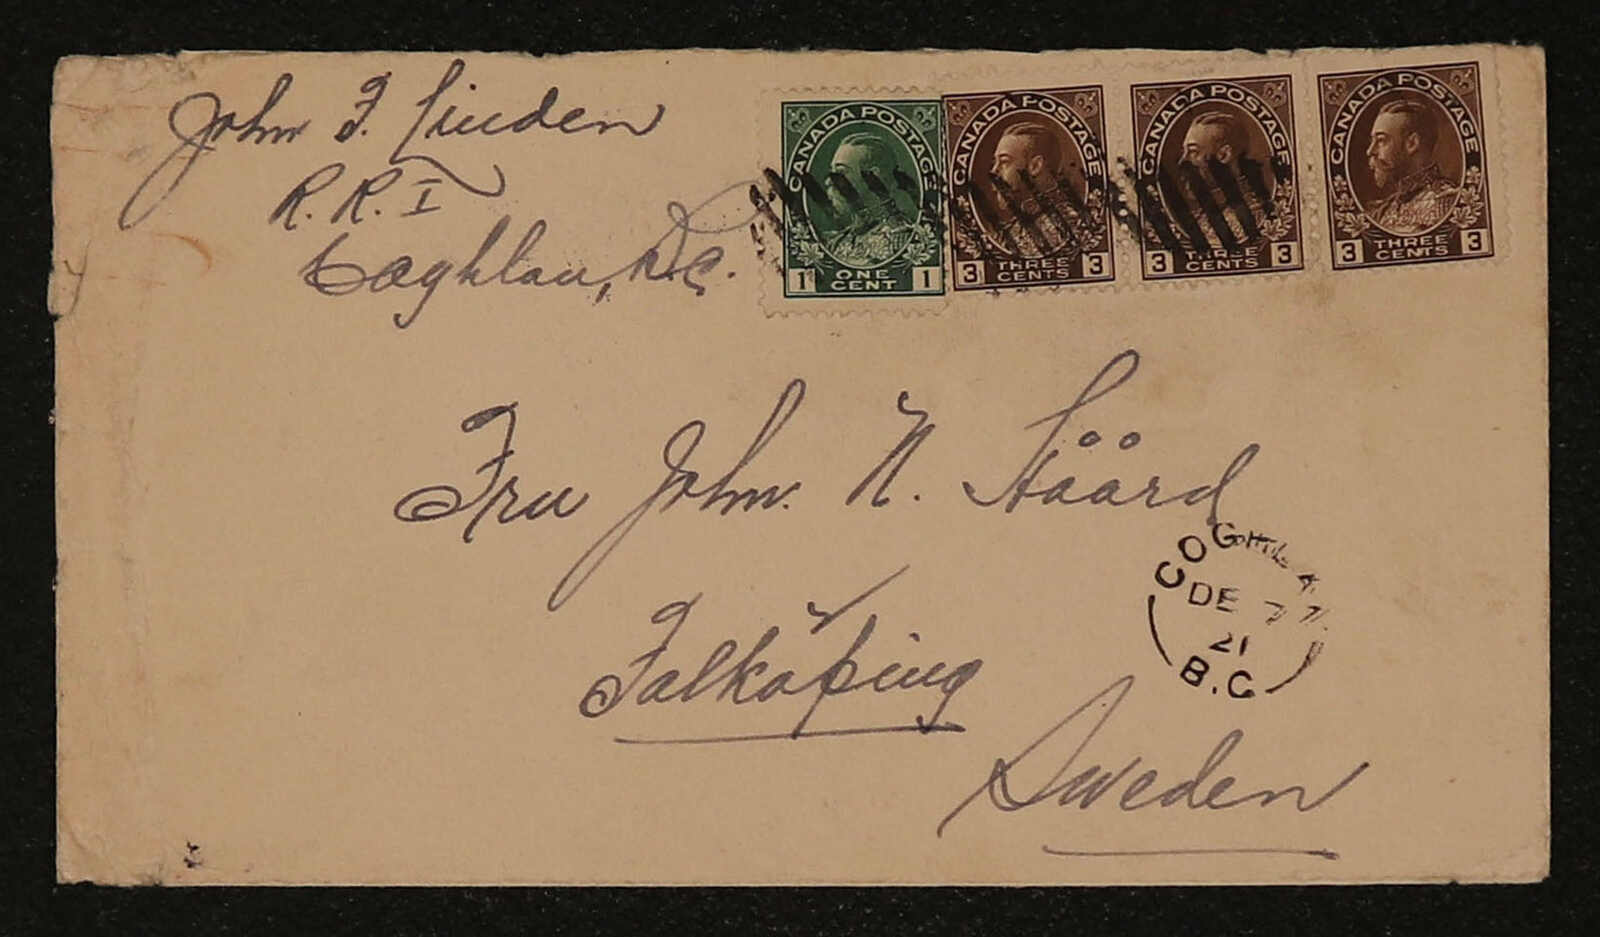 John F. Linden
R.R. I
Coghlan, B.C.
CANADA POSTAGE
1 ONE CENT 1
CANADA POSTAGE
3 THREE CENTS 3
CANADA POSTAGE
3 THREE CENTS 3
CANADA POSTAGE
3 THREE CENTS 3
Fru John. N. Håård
Falköping
Sweden
COGHLAN
DE 7
21
B.C.